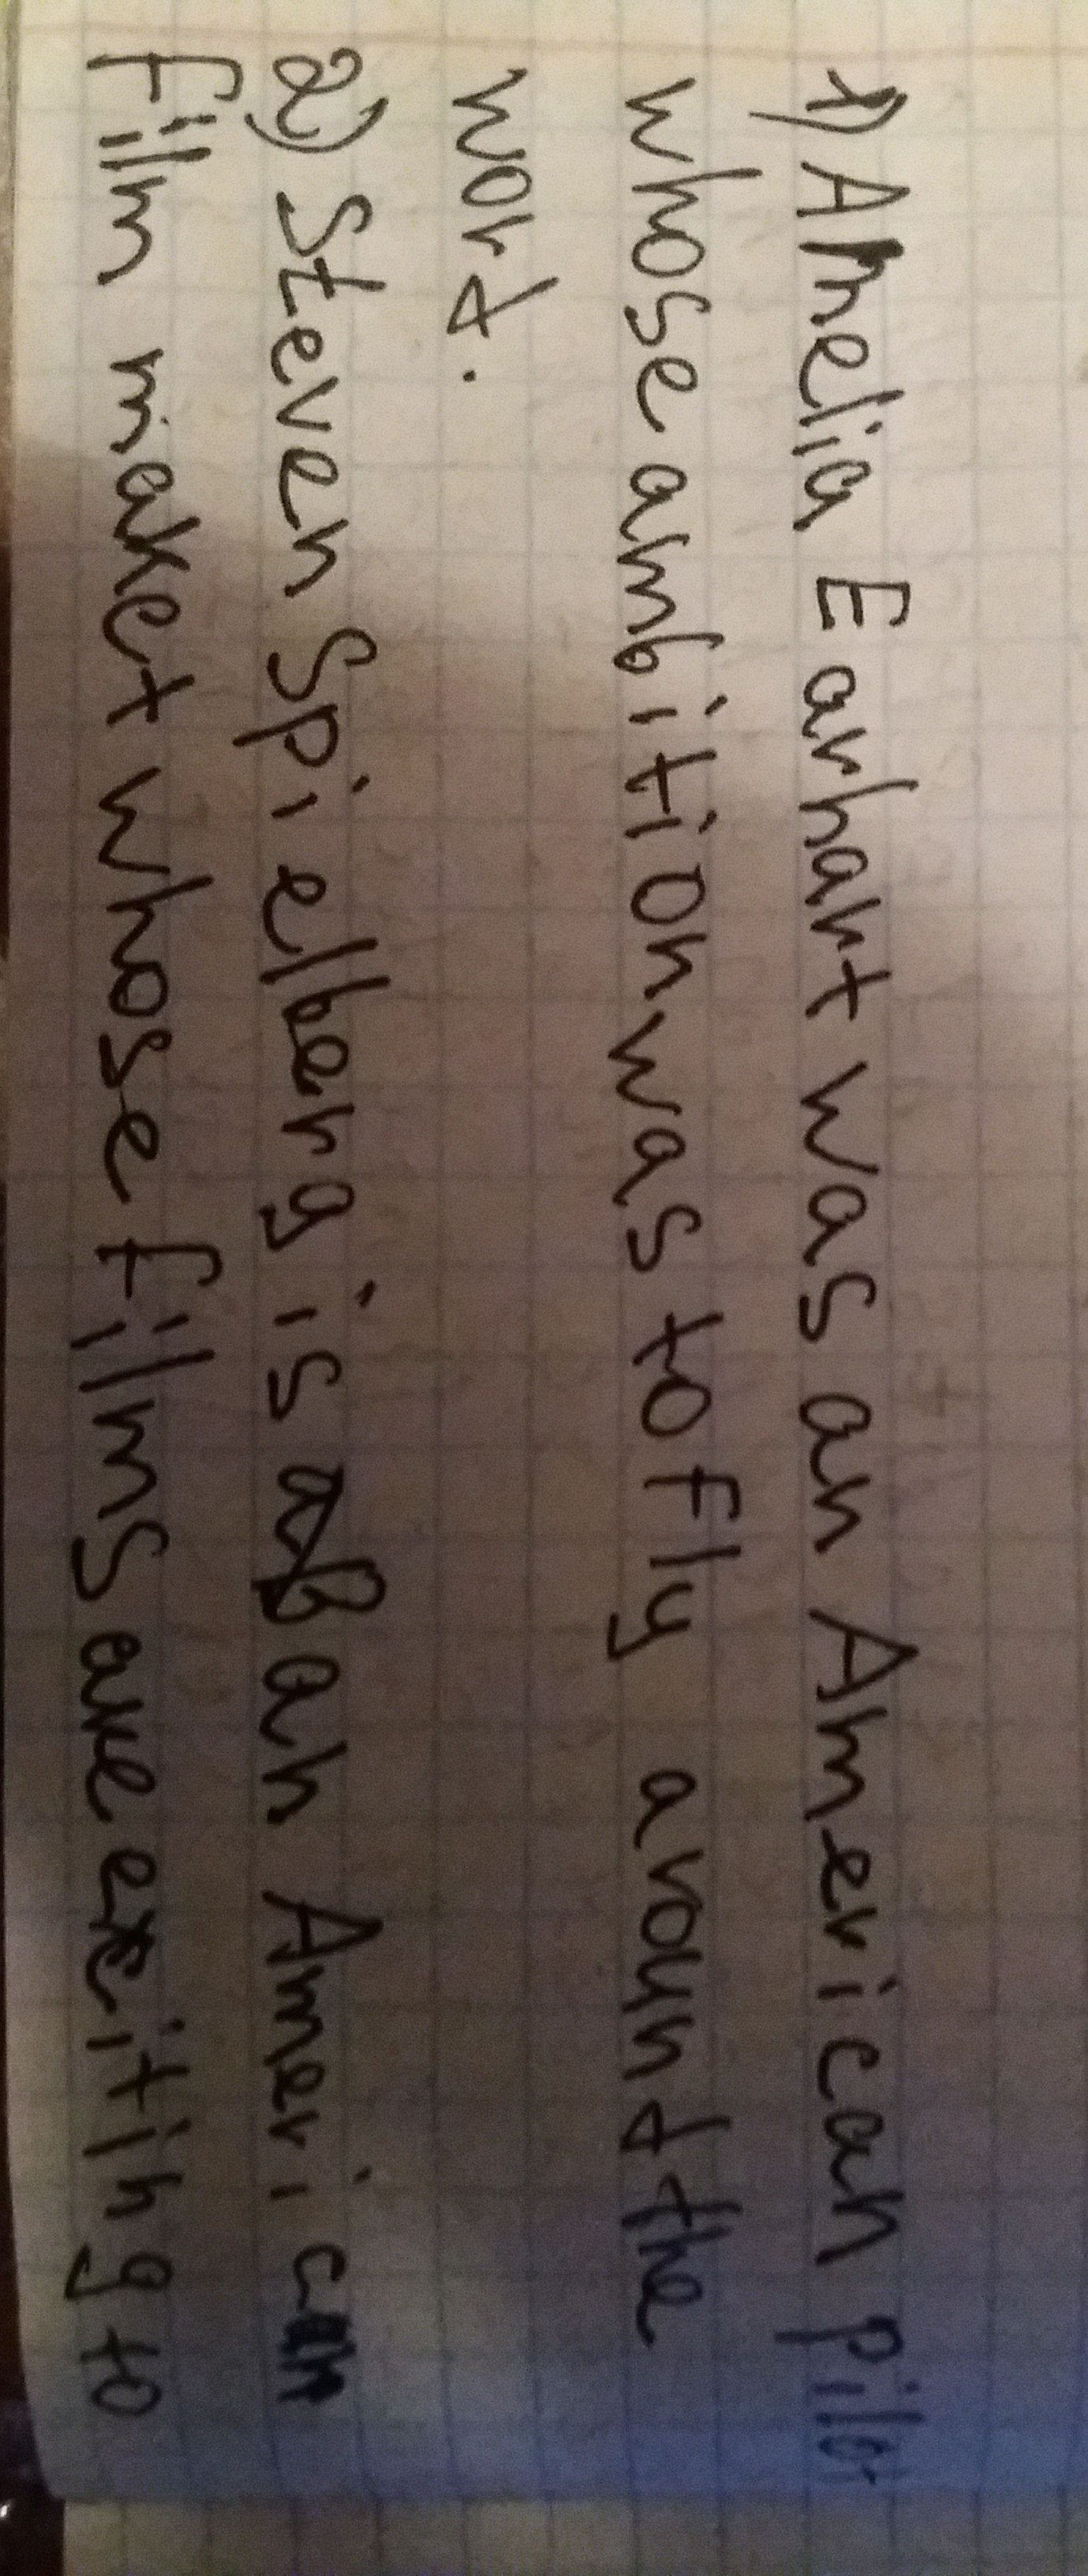 1) Amelia Earhart was an American pilot
whose ambition was to fly around the
word.
2) Steven Spielberg is an American
film maket whose films are exciting to